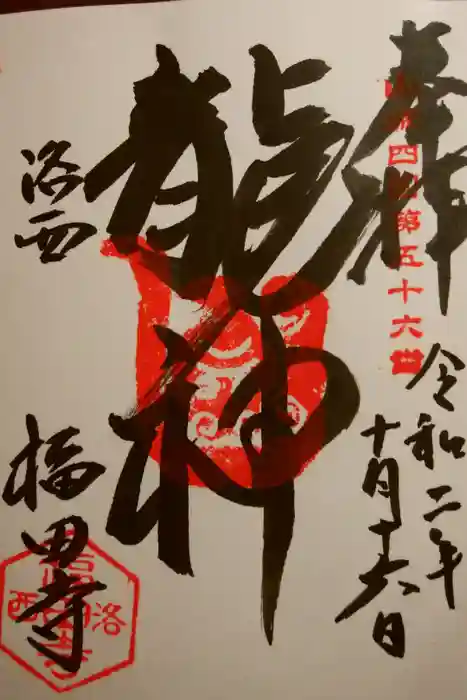 奉拝
四国第五十六世
令和二年
十月十六日
龍神
洛西
福田寺